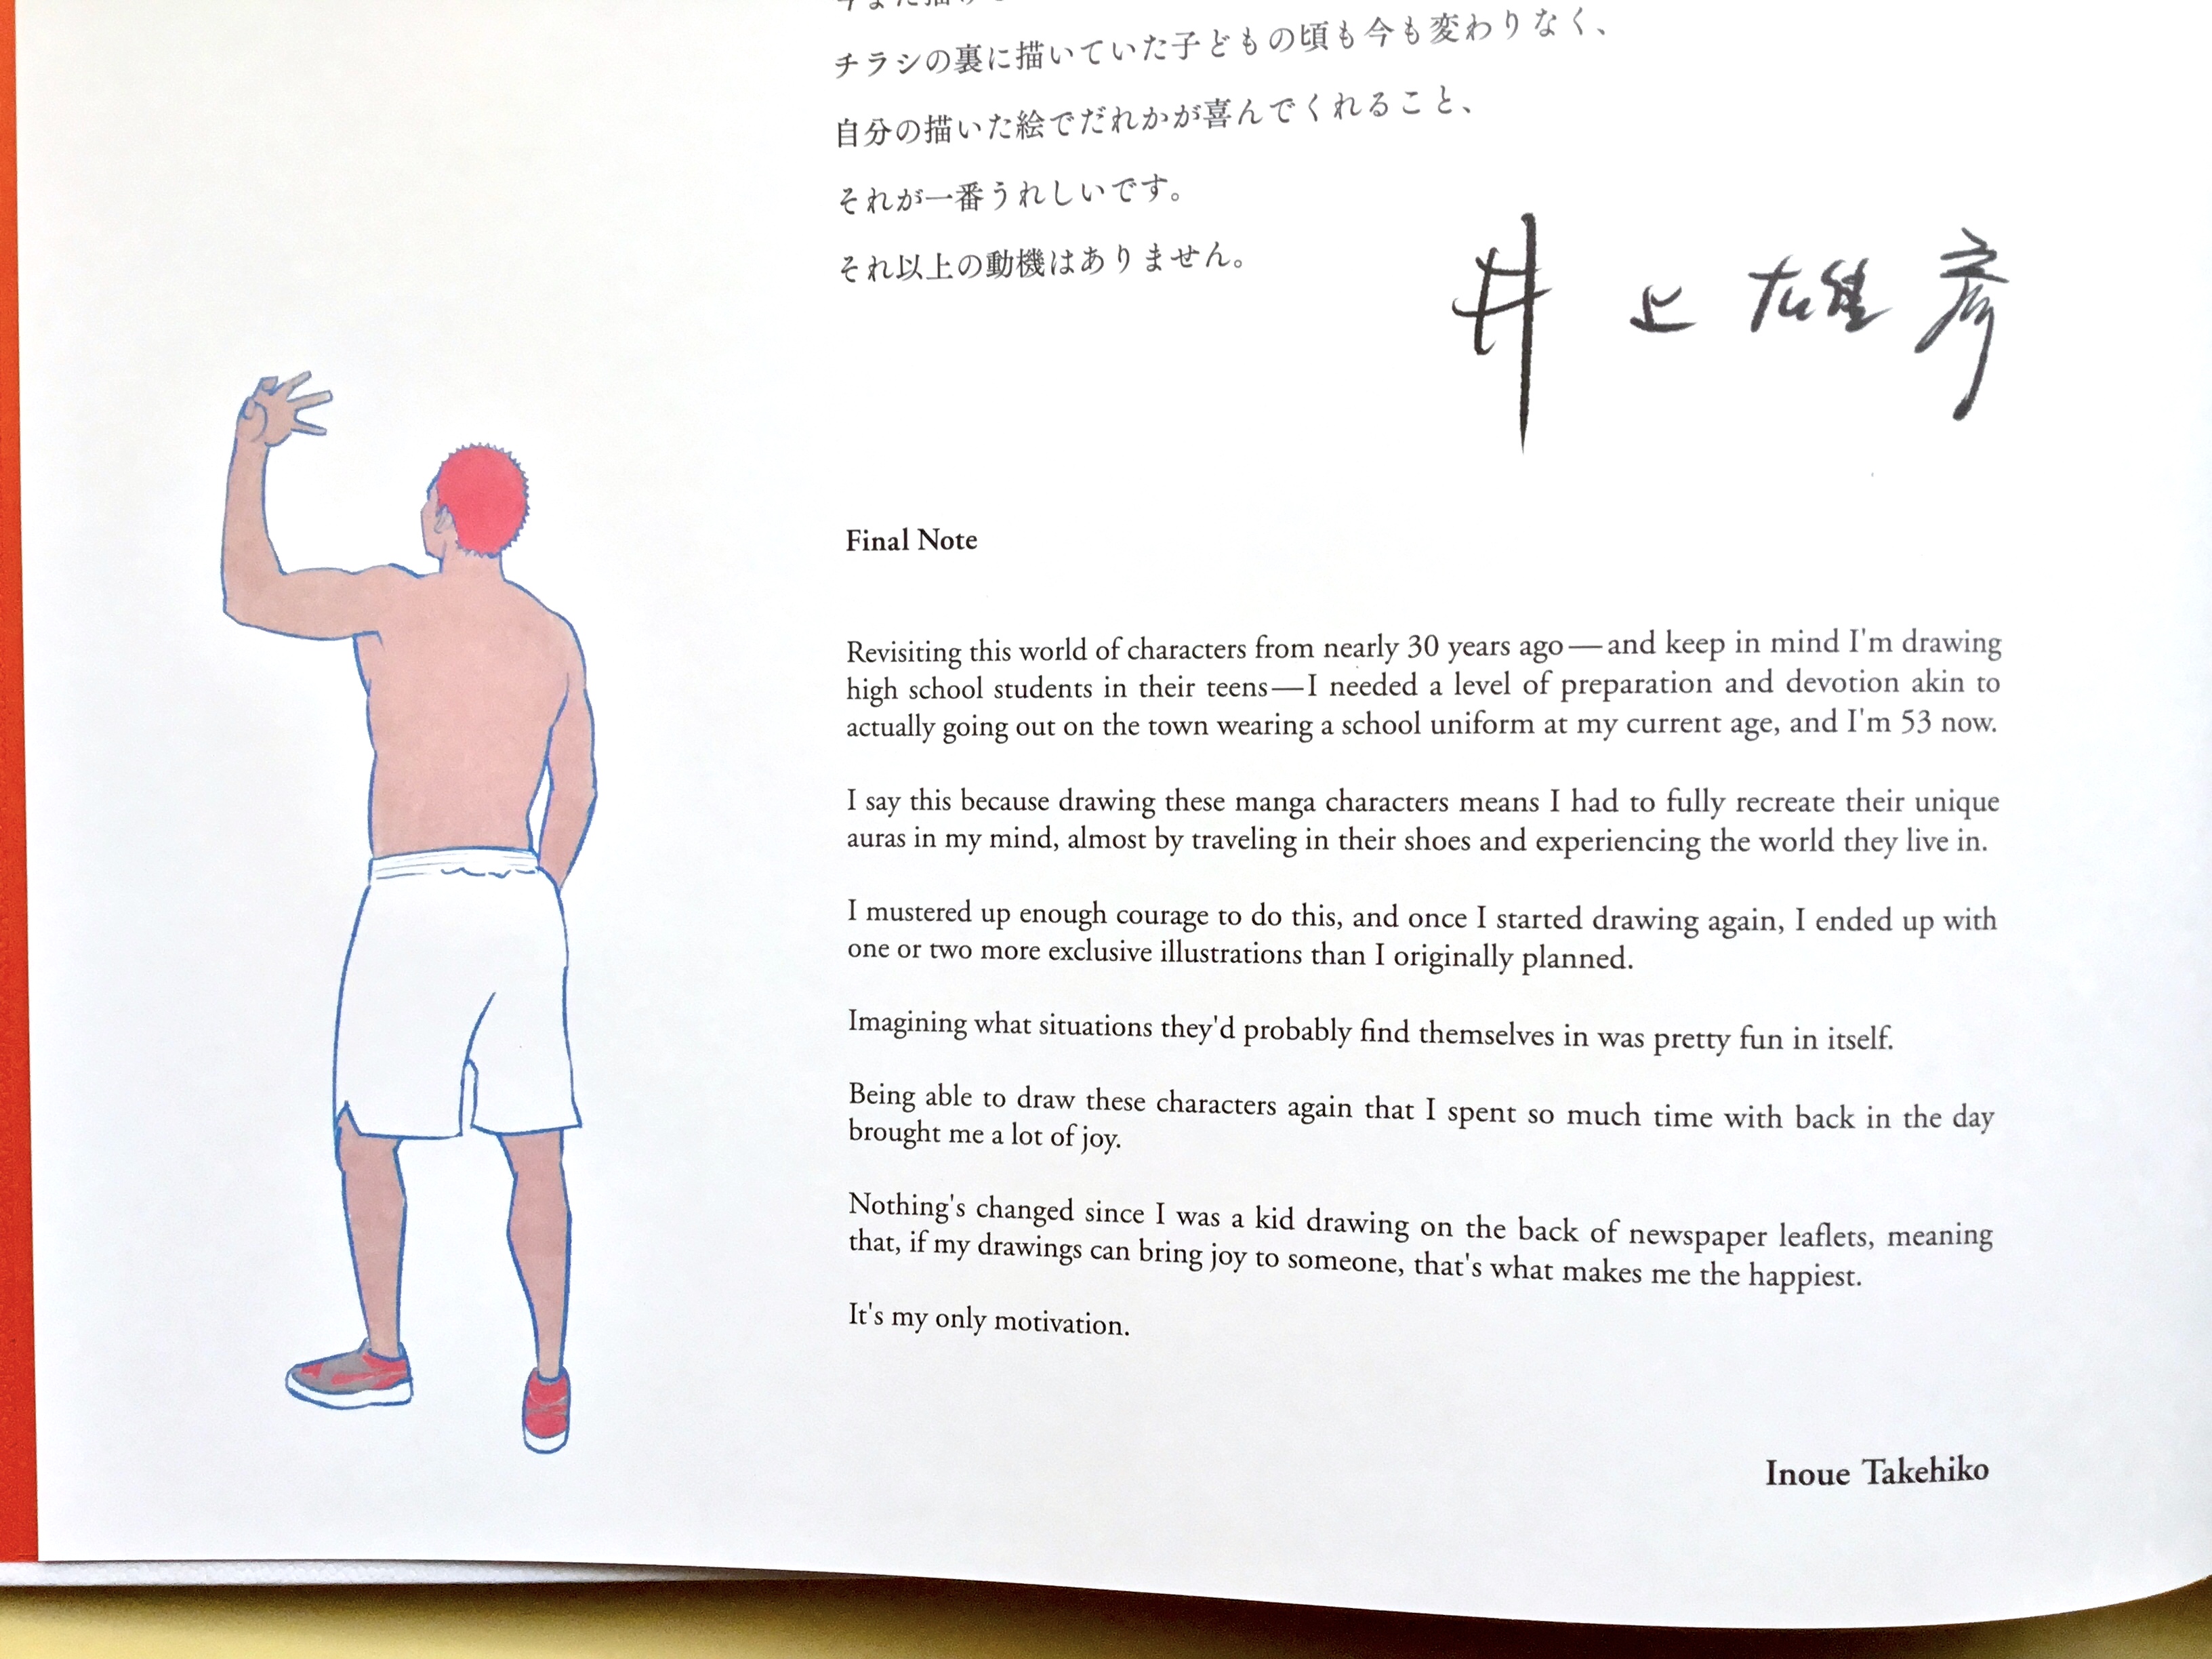 チラシの裏に描いていた子どもの頃も今も変わりなく、
自分の描いた絵でだれかが喜んでくれること、
それが一番うれしいです。
それ以上の動機はありません。
井上雄彦
Final Note
Revisiting this world of characters from nearly 30 years ago—and keep in mind I'm drawing
high school students in their teens—I needed a level of preparation and devotion akin to
actually going out on the town wearing a school uniform at my current age, and I'm 53 now.
I say this because drawing these manga characters means I had to fully recreate their unique
auras in my mind, almost by traveling in their shoes and experiencing the world they live in.
I mustered up enough courage to do this, and once I started drawing again, I ended up with
one or two more exclusive illustrations than I originally planned.
Imagining what situations they'd probably find themselves in was pretty fun in itself.
Being able to draw these characters again that I spent so much time with back in the day
brought me a lot of joy.
Nothing's changed since I was a kid drawing on the back of newspaper leaflets, meaning
that, if my drawings can bring joy to someone, that's what makes me the happiest.
It's my only motivation.
Inoue Takehiko